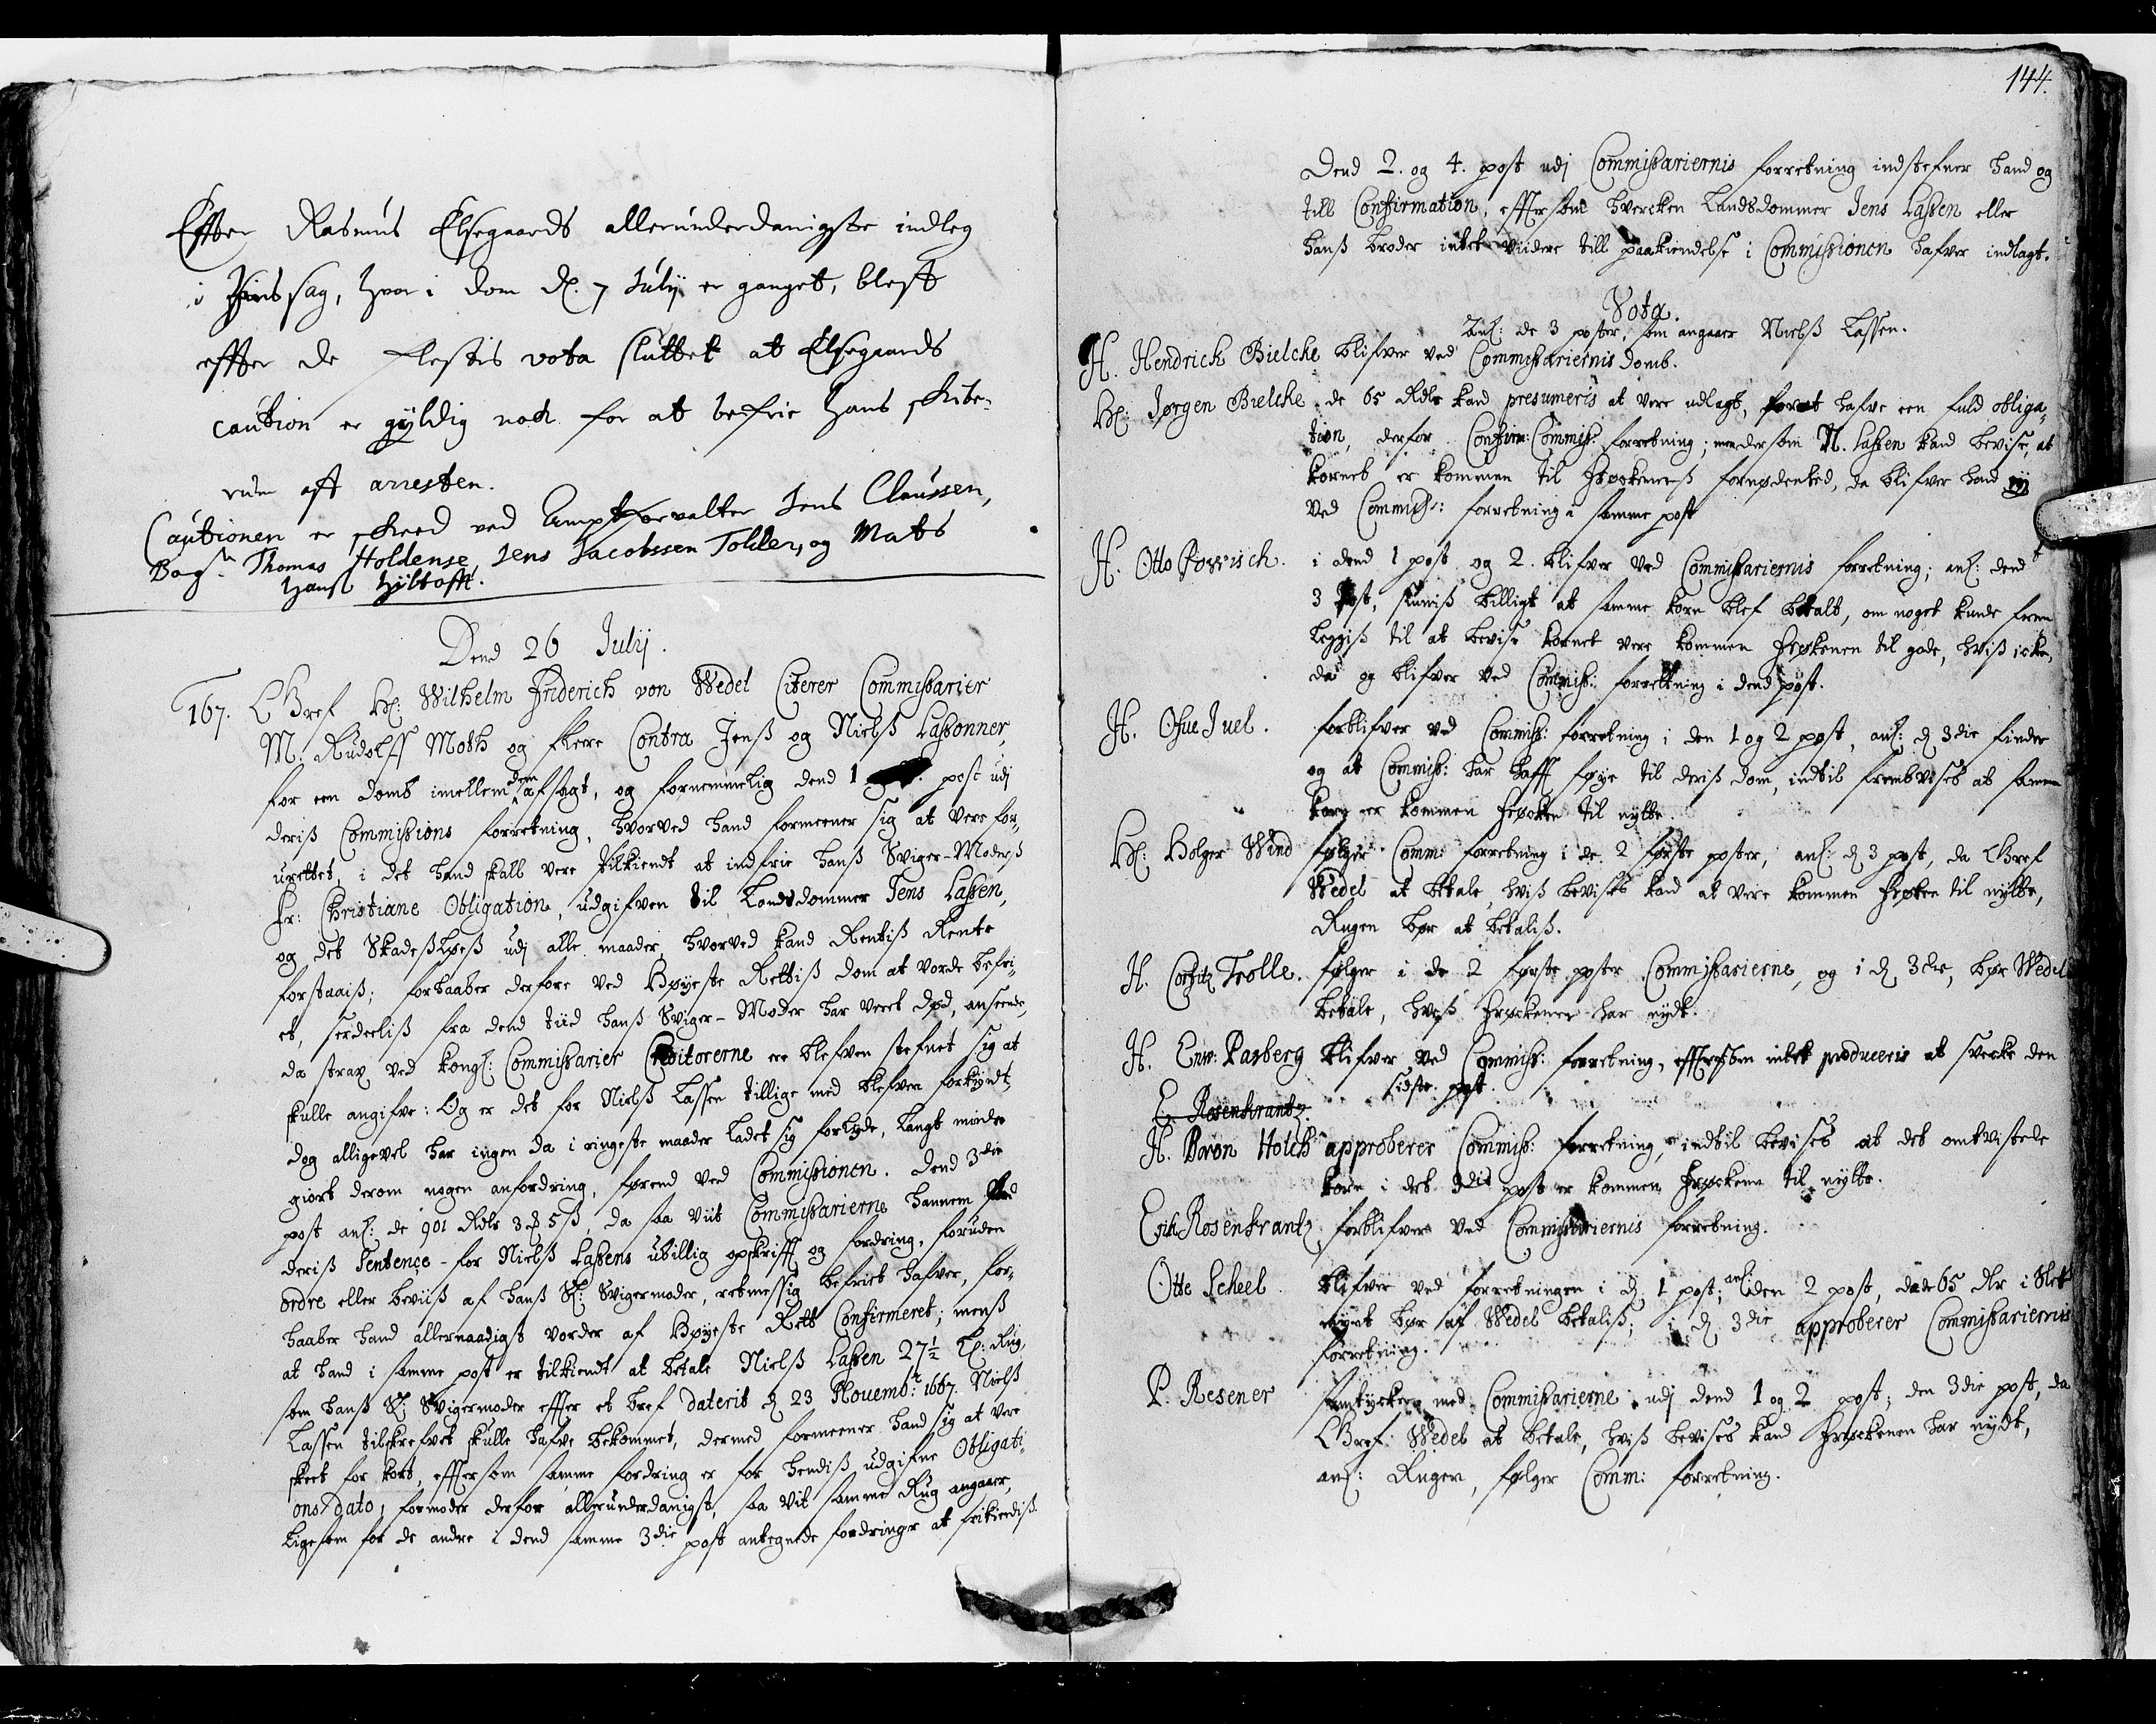 Effter Rasmus Elsegaards allerunderdanigste indleg
i sag, hvor i dom d. 7 Julij er ganget, bleff
effter de flestis vota sluttet at Elsegaards
caution er gyldig nock for at befrie hans
aff arresten.
Cautionen er skeed ved Amptforvalter Jens Claussen,
Thomas Holdense, Jens Jacobssen Tolder, og Mats
Hanß
Dend 26 Julij.
167. LGref H: Wilhelm Friderich von Wedel Citerer Commissarier
M. Rudolff Moth og flere Contra Jenß og Nielß Lassonner,
for een domb imellem dem afsagt, og fornemmelig dend 1 post udj
deriß Commissions forretning, hvorved hand formeener sig at vere for-
urettet, i det hand skall vere tilkiendt at indfrie hanß Sviger-Moderß
Fr: Christiane Obligation, udgifven til Landsdommer Jens Lassen,
og det Skadeßløeß udj alle maader, hvorved kand Rentiß Rente
forstaaiß; forhaaber derfore ved Høyeste Rettiß dom at vorde befri-
et, serdeeliß fra dend tiid hanß Sviger-Moder har veret død, anseende,
da strax ved kongl: Commissarier Creditorerne ere blefven stefnet sig at
skulle angifve: Og er det for Nielß Lassen tillige med blefven forkyndt,
dog alligevel har ingen da i ringeste maader ladet sig forlyde, langt mindre
giort derom nogen anfordring, førend ved Commissionen. Dend 3die
post anl: de 901 Rdlr 3 ℔ 5 ß, da saa viit Commissarierne hannem ved
deriß Sentence for Nielß Lassens ubillig opskrifft og fordring, foruden
ordre eller beviiß af hanß Sl: Svigermoder, retmessig befriet hafver, for-
haaber hand allernaadigst vorder af Høyeste Rett Confirmeret; menß
at hand i samme post er tilkiendt at betale Nielß Lassen 27½ Rug,
som hanß Sl: Svigermoder effter et bref daterit d 23 Novembr: 1667. Nielß
Lassen tilskrefvet skulle hafve bekommet, dermed formeener hand sig at vere
skeet for kort, effter som samme fordring er for hendiß udgifne Obligati-
ons dato; formoder derfor allerunderdanigst, saa vit samme Rug angaaer,
ligesom for de andre i dend samme 3die post antegnede fordringer at frikiendiß
144.
Dend 2. og 4. post udj Commissariernis forretning indstefner hand og
till Confirmation, effter som hvercken Landsdommer Jens Lassen eller
hanß broder intet viidere till paakiendelse i Commissionen hafver indlagt.
Vota.
Anl: de 3 poster, som angaaer Nielß Lassen.
H. Hendrich Bielche blifver ved Commissariernis domb.
H: Jørgen Bielche de 65 Rdlr kand presumeris at vere udlagt, for at hafve een fuld obliga-
tion, derfor Confirm: Commiss: forretning; men der som N. Lassen kand bevise, at
kornet er kommen til Frøckenerß fornødenhed, da blifver hand ej
ved Commiss: forretning i samme post
H. Otto Powisch. i dend 1 post og 2. blifver ved Commissariernis forretning; anl: dend
3 post, siuniß billigt at samme korn blef betalt, om noget kunde frem
leggiß til at bevise kornet vere kommen Frøkenen til gode, hviß icke,
da og blifver ved Commiss: forrettning i dend post.
H. Ofue Juel. forblifver ved Commiss: forretning i den 1 og 2 post, anl: d 3die finder
og at Commiss: har hafft føye til deriß dom, indtil frembviseß at samme
korn er kommen Frøcken til nytte.
H: Holger Wind følger Comm: forretning i de 2 første poster, anl: d 3 post, da LGref
Wedel at betale, hviß beviseß kand at vere kommen Frøken til nytte,
Rugen bør at betaliß.
H. Corfitz Trolle. følger i de 2 første poster Commissarierne, og i d 3die, bør Wedel
betale, hveß Frøckener har nydt.
H. Enw: Parberg blifver ved Commiss: forretning, efftersom intet produceris at svecke den
sidste post.
E. Rosenkrantz.
H. Baron Holch approberer Commiss: forretning, indtil beviseß at det omtvistede
korn i det 3die post er kommen Frøckene til nytte.
Erik Rosenkrantz forblifver ved Commissariernis forretning.
Otte Scheel. blifver ved forretningen i d 1 post; anl: den 2 post, de 65 Rlr i Slet
mynt bør af Wedel betaliß; i d 3die approberer Commissariernis
forretning.
P. Resener samtycker med Commissarierne udj dend 1 og 2 post; den 3die post, da
LGref: Wedel at betale, hviß beviseß kand Frøckenen har nydt,
anl: Rugen, følger Comm: forretning.